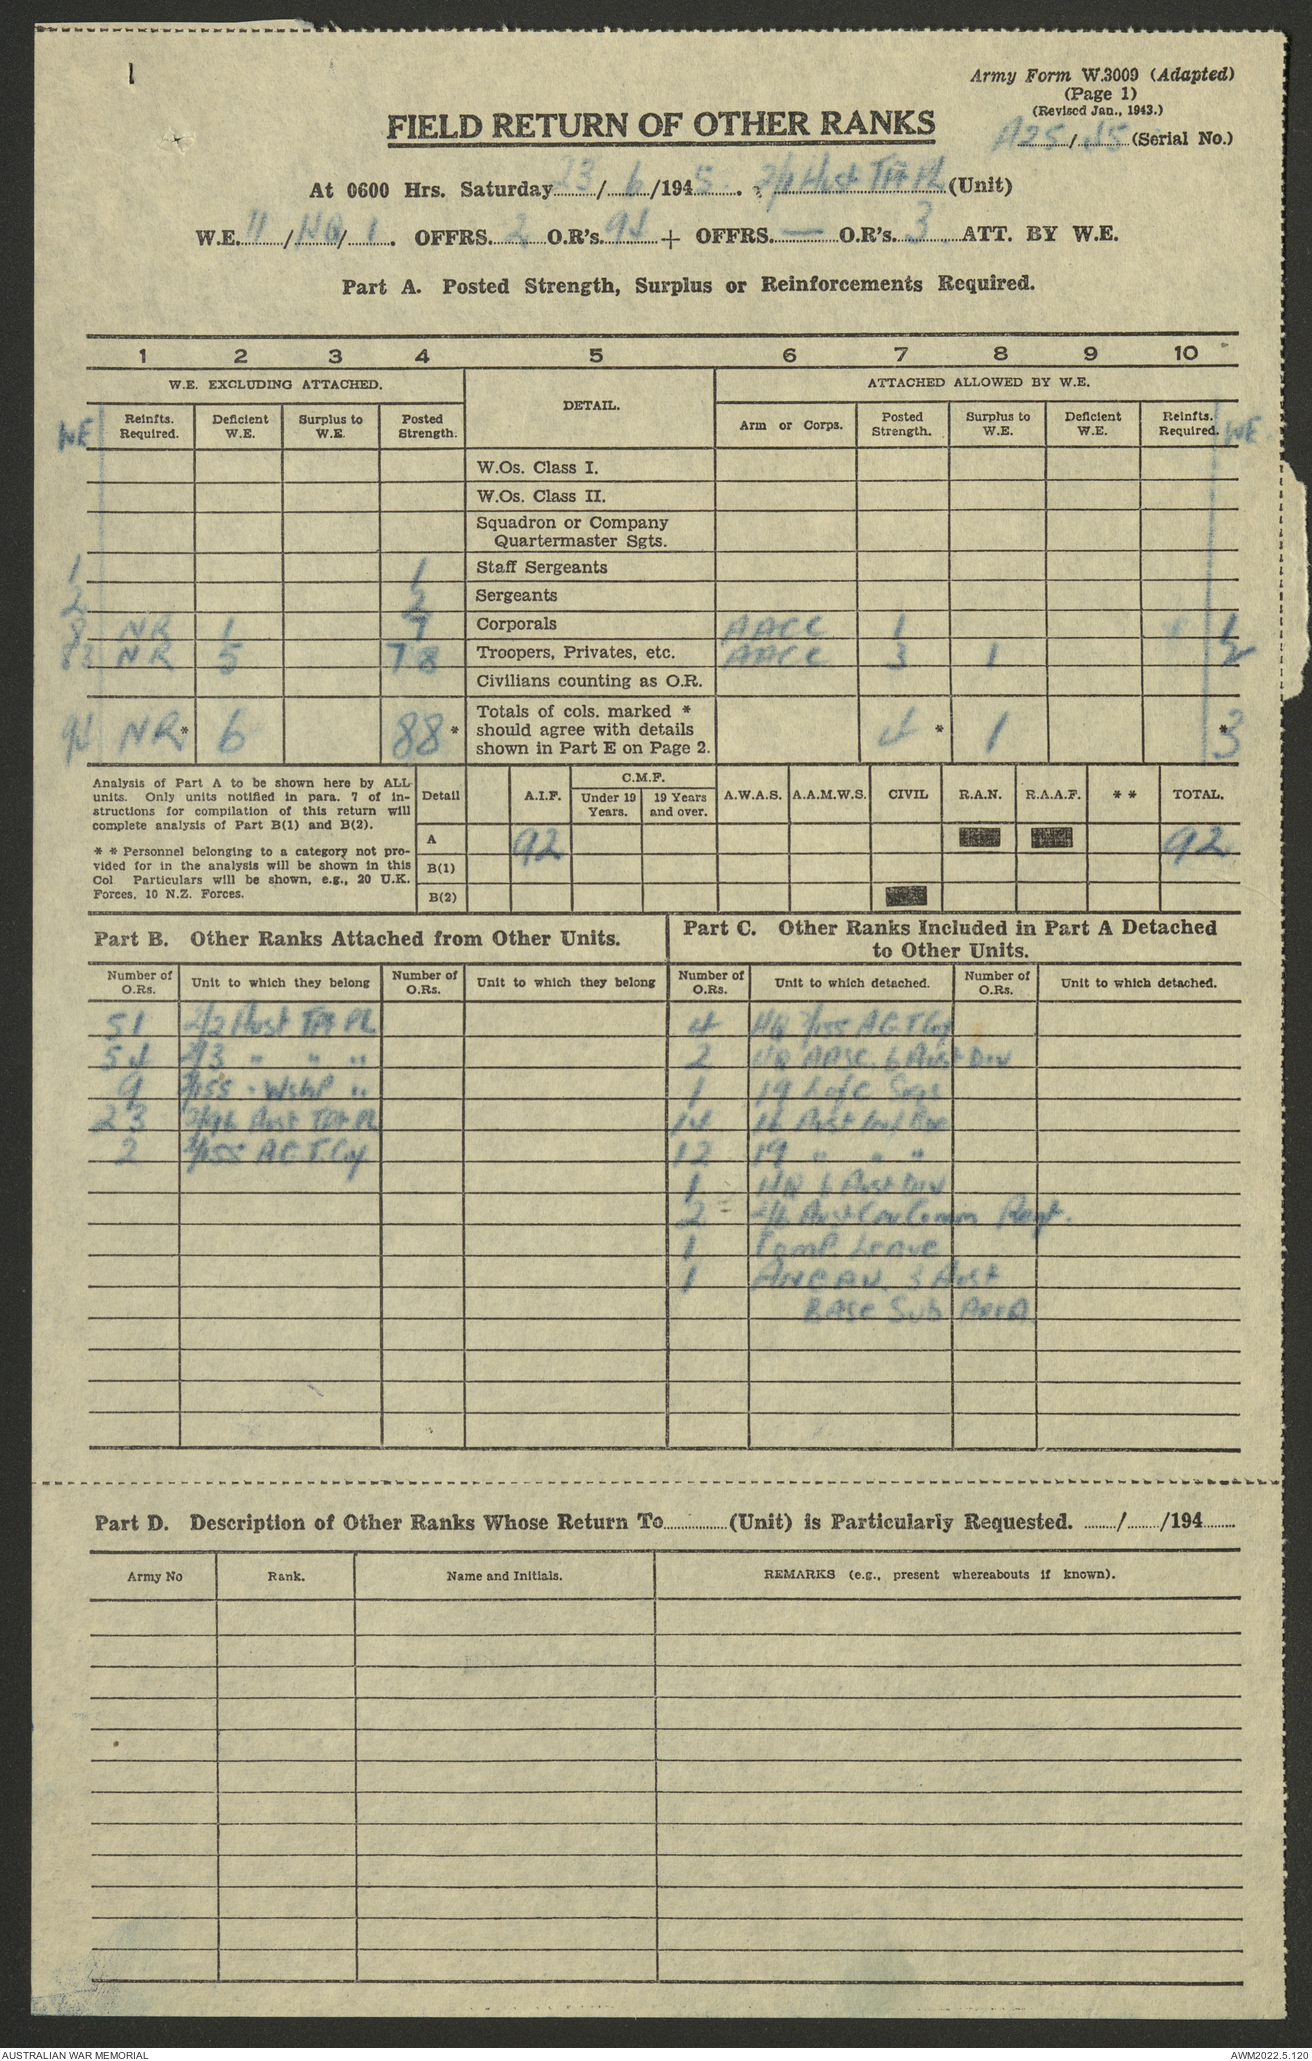 1
Army Form W.3009 (Adapted)
(Page 1)
(Revised Jan., 1943.)
FIELD RETURN OF OTHER RANKS
A25/ (Serial No.)
At 0600 Hrs. Saturday 23/6/1945. Aust Pl (Unit)
W.E. 11/HQ/1. OFFRS. 2 O.R's. 94 + OFFRS. — O.R's. 3 ATT. BY W.E.
Part A. Posted Strength, Surplus or Reinforcements Required.
1 2 3 4 5 6 7 8 9 10
W.E. EXCLUDING ATTACHED. DETAIL. ATTACHED ALLOWED BY W.E.
WE Reinfts. Required. Deficient W.E. Surplus to W.E. Posted Strength. Arm or Corps. Posted Strength. Surplus to W.E. Deficient W.E. Reinfts. Required. WE
W.Os. Class I.
W.Os. Class II.
Squadron or Company
Quartermaster Sgts.
1 1 Staff Sergeants
2 2 Sergeants
8 NR 1 7 Corporals AACC 1 1
83 NR 5 78 Troopers, Privates, etc. AACC 3 1 2
Civilians counting as O.R.
94 NR* 6 88* Totals of cols. marked * should agree with details shown in Part E on Page 2. 4* 1 *3
Analysis of Part A to be shown here by ALL
units. Only units notified in para. 7 of in-
structions for compilation of this return will
complete analysis of Part B(1) and B(2).
* * Personnel belonging to a category not pro-
vided for in the analysis will be shown in this
Col Particulars will be shown, e.g., 20 U.K.
Forces, 10 N.Z. Forces.
Detail A.I.F. C.M.F. Under 19 Years. 19 Years and over. A.W.A.S. A.A.M.W.S. CIVIL R.A.N. R.A.A.F. * * TOTAL.
A 92 92
B(1)
B(2)
Part B. Other Ranks Attached from Other Units.
Number of O.Rs. Unit to which they belong Number of O.Rs. Unit to which they belong
51 2/2 Aust Pl
54 2/3 " " "
9 2/155 " Wshp "
23 Aust Pl
2 2/155 A.G.T. Coy
Part C. Other Ranks Included in Part A Detached
to Other Units.
Number of O.Rs. Unit to which detached. Number of O.Rs. Unit to which detached.
4 HQ 2/155 AGT Coy
2 HQ AASC 6 Aust Div
1 19 L of C Sigs
14 16 Aust Inf Bde
12 19 " " "
1 HQ 6 Aust Div
2 2/6 Aust Cav Comm Regt.
1 Comp Leave
1 3 Aust
Base Sub Area
Part D. Description of Other Ranks Whose Return To............(Unit) is Particularly Requested. ......../......../194......
Army No Rank. Name and Initials. REMARKS (e.g., present whereabouts if known).
AUSTRALIAN WAR MEMORIAL AWM2022.5.120